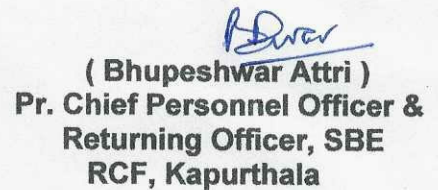 ( Bhupeshwar Attri )
Pr. Chief Personnel Officer &
Returning Officer, SBE
RCF, Kapurthala